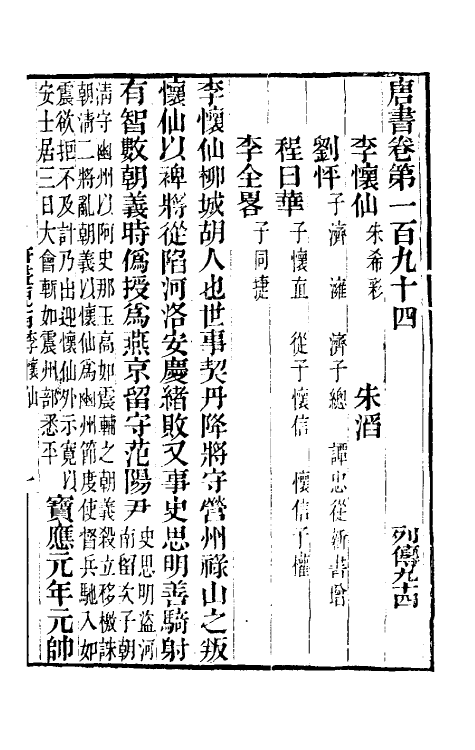 唐書卷第一百九十四 列傳九十四
李懷仙 朱希彩 朱滔
劉怦 子濟 澭 濟子總 譚忠從新書增
程日華 子懷直 從子懷信 懷信子權
李全畧 子同捷
李懷仙柳城胡人也世事契丹降將守營州祿山之叛
懷仙以裨將從陷河洛安慶緒敗又事史思明善騎射
有智數朝義時偽授為燕京留守范陽尹 史思明盜河
南留次子朝
清守幽州以阿史那玉高如震輔之朝義殺立移檄誅
朝清二將亂朝義以懷仙為幽州節度使督兵馳入如
震欲拒不及計乃出迎懷仙外示寬以
安士居三日大會斬如震州部悉平 寶應元年元帥
李懷仙
一